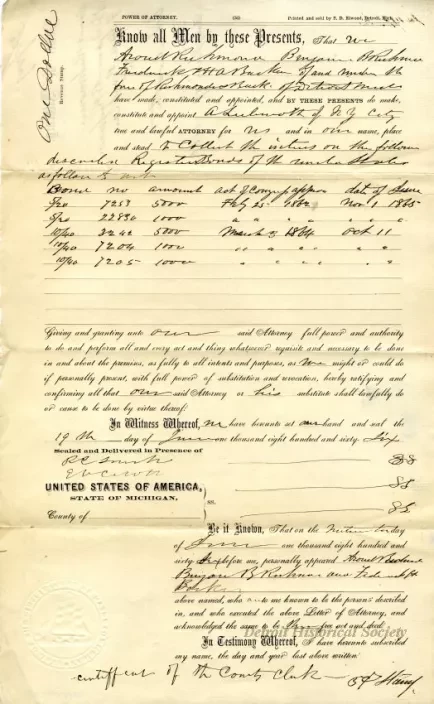 POWER OF ATTORNEY. Printed and sold by E. B. Smith, Detroit, Mich.
One Dollar
Revenue Stamp.
Know all Men by these Presents, That we
Richmond Benjamin
of and under the
of Richmond & of Detroit Mich
have made, constituted and appointed, and BY THESE PRESENTS do make,
constitute and appoint of N Y City
true and lawful ATTORNEY for us and in our name, place
and stead to Collect the interest on the following
described Registered Bonds of the United States
as follows to wit
Bond no amount act of Congress approv date of Issue
5/20 7253 5000 Feby 25 1862 Nov 1 1865
5/20 22830 1000 " " " " "
10/40 2242 5000 March 3 1864 Oct 11
10/40 7204 1000 " " " " "
10/40 7205 1000 " " " " "
Giving and granting unto our said Attorney full power and authority
to do and perform all and every act and thing whatsoever requisite and necessary to be done
in and about the premises, as fully to all intents and purposes, as we might or could do
if personally present, with full power of substitution and revocation, hereby ratifying and
confirming all that our said Attorney or his substitute shall lawfully do
or cause to be done by virtue thereof.
In Witness Whereof, we have hereunto set our hand and seal the
19th day of June one thousand eight hundred and sixty Six
Sealed and Delivered in Presence of
UNITED STATES OF AMERICA,
STATE OF MICHIGAN,
County of ss.
Be it Known, That on the day
of June one thousand eight hundred and
sixty Six before me, personally appeared
Benjamin B Richmond and
above named, who to me known to be the persons described
in, and who executed the above Letter of Attorney, and
acknowledged the same to be their free act and deed.
Detroit Historical Society
In Testimony Whereof, I have hereunto subscribed
my name, the day and year last above written.
certificate of the County Clerk